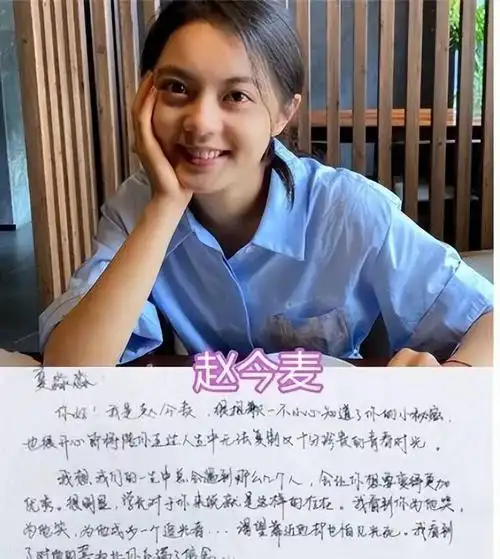 赵今麦
夏淼淼：
你好！我是赵今麦，很抱歉一不小心知道了你的小秘密，
也很开心即将陪你走过人生中无法复制又十分珍贵的青春时光。
我想我们的一生中总会遇到那么几个人，会让你想要变得更加
优秀。很明显，学长对于你来说就是这样的存在。我看到你为他哭，
为他笑，为他成为一个追光者……渴望靠近他却也怕见光死。我看到